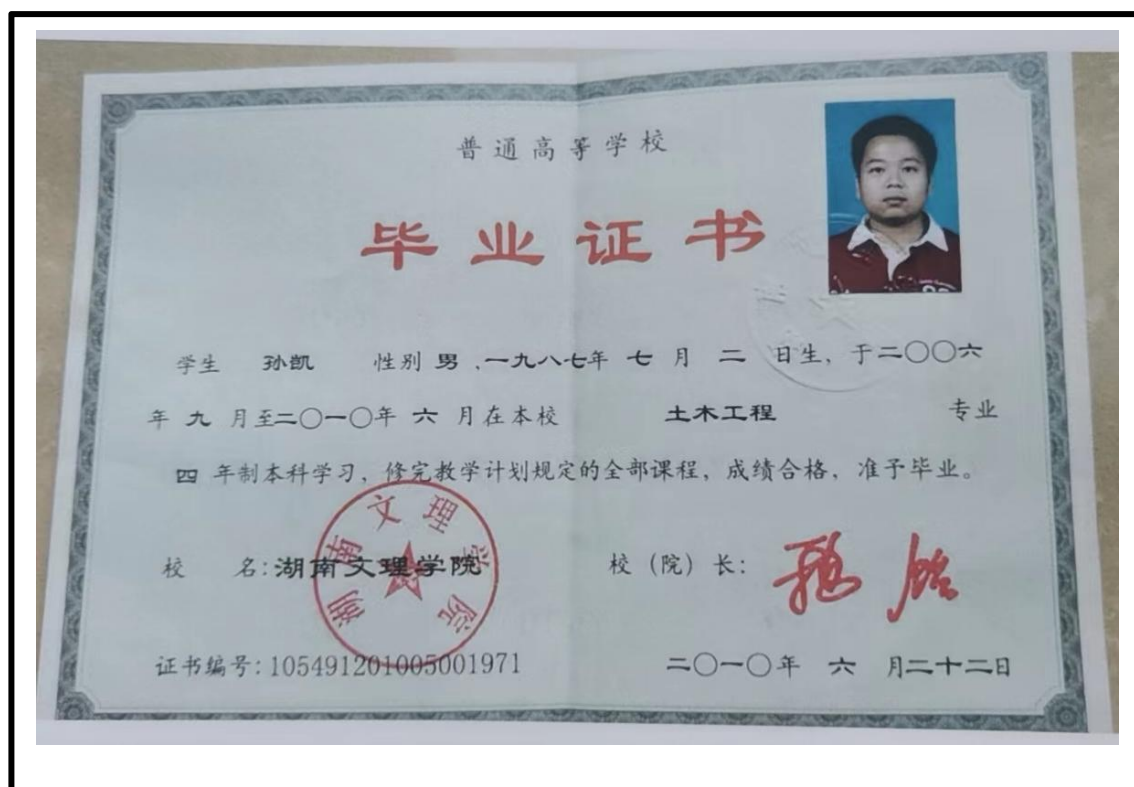 普通高等学校
毕业证书
学生 孙凯 性别 男 ,一九八七年 七 月 二 日生, 于二〇〇六
年 九 月至二〇一〇年 六 月在本校 土木工程 专业
四 年制本科学习, 修完教学计划规定的全部课程, 成绩合格, 准予毕业。
校 名: 湖南文理学院 校 (院) 长:
湖南文理学院
证书编号: 105491201005001971 二〇一〇年 六 月二十二日